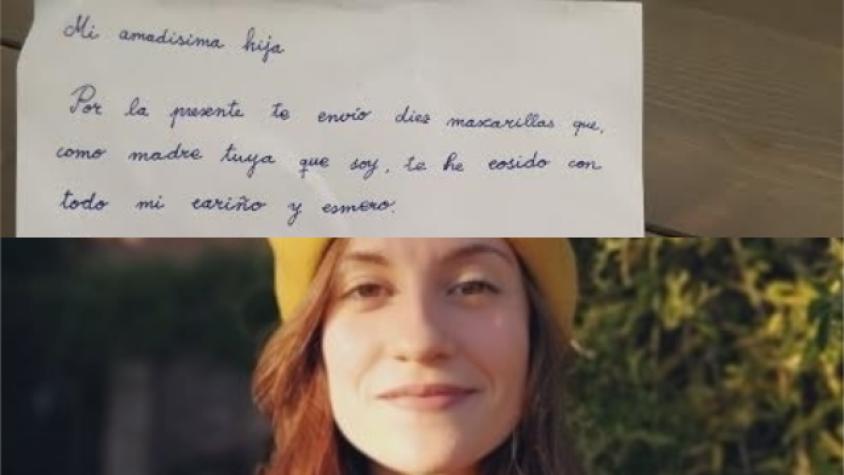 Mi amadisima hija
Por la presente te envío diez maxarillas que,
como madre tuya que soy, te he cosido con
todo mi cariño y esmero.